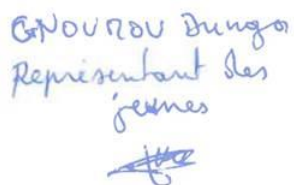 GNOUMOU Dunga
Représentant des
jeunes